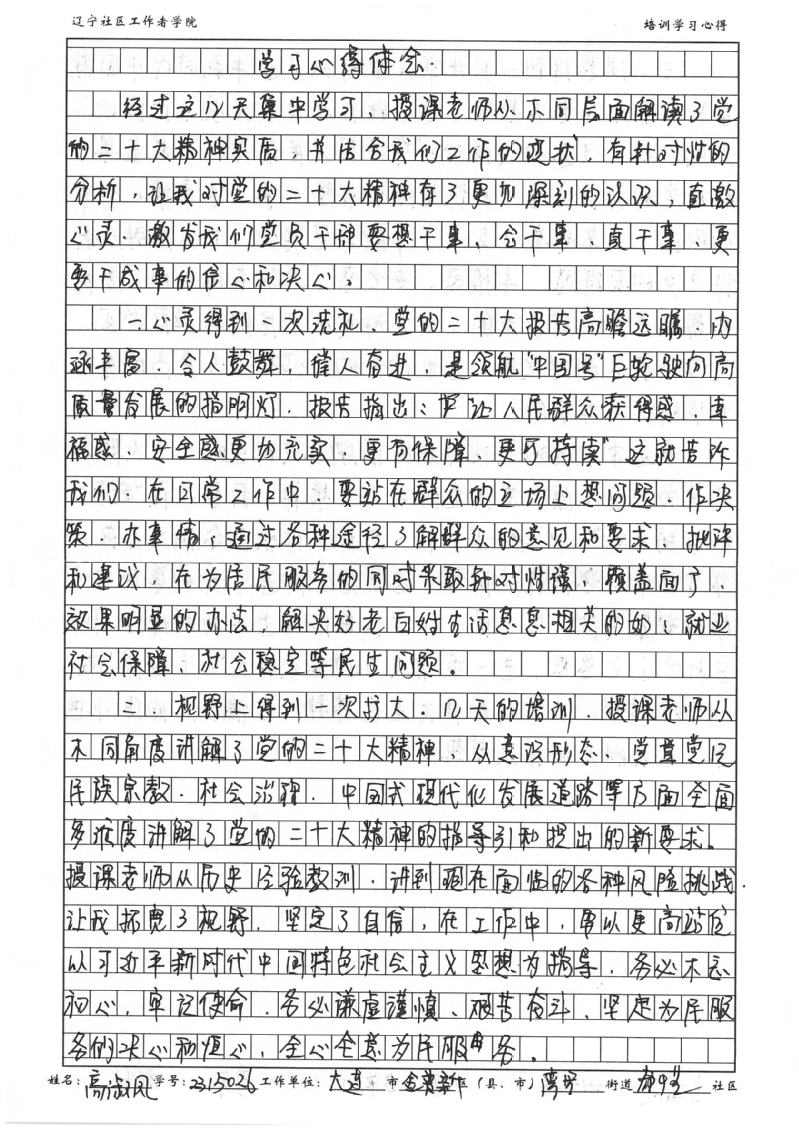 辽宁社区工作者学院 培训学习心得
学习心得体会.
经过这几天集中学习，授课老师从不同层面解读了党
的二十大精神实质，并结合我们工作的现状，有针对性的
分析，让我对党的二十大精神有了更加深刻的认识，直激
心灵.激发我们党员干部要想干事、会干事、真干事、更
要干成事的信心和决心。
一心灵得到一次洗礼、党的二十大报告高瞻远瞩.内
涵丰富.令人鼓舞，催人奋进，是领航“中国号”巨轮驶向高
质量发展的指明灯.报告指出：“让人民群众获得感.幸
福感.安全感更加充实.更有保障、更可持续”这就告诉
我们.在日常工作中.要站在群众的立场上想问题.作决
策.办事情，通过各种途径了解群众的意见和要求、批评
和建议，在为居民服务的同时采取针对性强，覆盖面广.
效果明显的办法，解决好老百姓生活息息相关的如：就业
社会保障、社会稳定等民生问题。
二 视野上得到一次扩大.几天的培训.授课老师从
不同角度讲解了党的二十大精神，从意识形态、党章党纪
民族宗教.社会治理.中国式现代化发展道路等方面全面
多维度讲解了党的二十大精神的指导引和提出的新要求。
授课老师从历史经验教训.讲到现在面临的各种风险挑战.
让我拓宽了视野.坚定了自信，在工作中，要以更高站位
以习近平新时代中国特色社会主义思想为指导，务必不忘
初心，牢记使命.务必谦虚谨慎、艰苦奋斗、坚定为民服
务的决心和恒心，全心全意为民服务。
姓名：高淑凤 学号：2315026 工作单位：大连 市 金普新 区（县、市）湾里 街道 社区